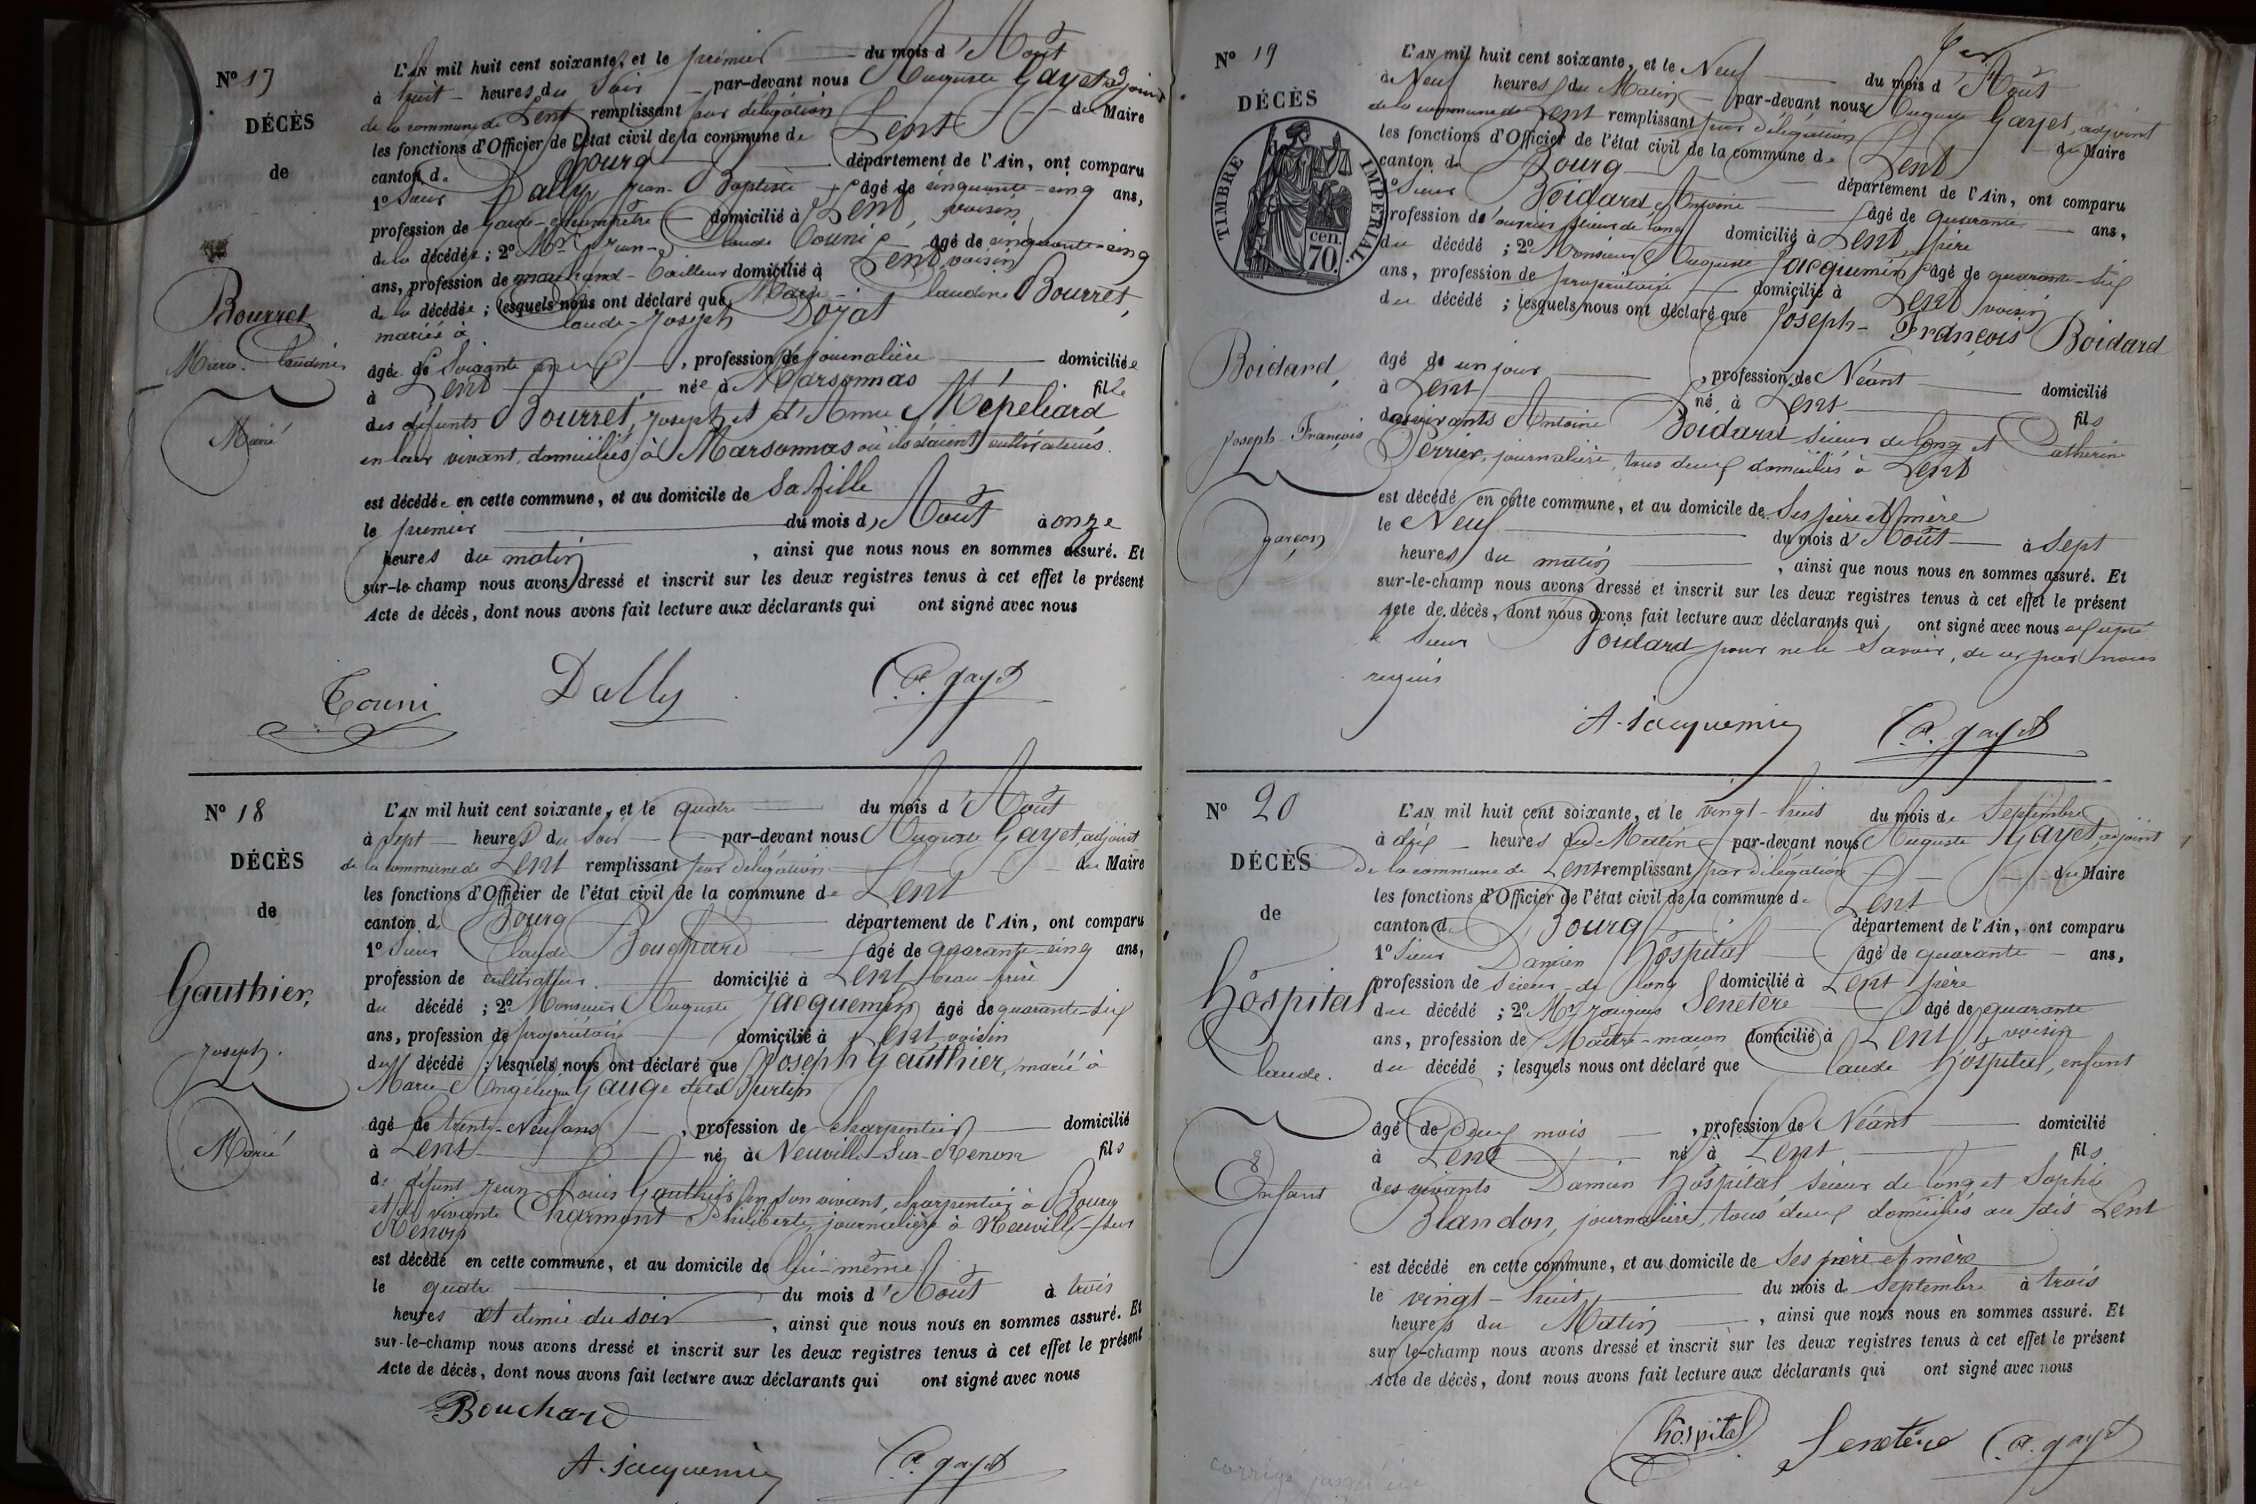 N° 17
DÉCÈS
de
Bourret
Marie Claudine
Marié
L'AN mil huit cent soixante, et le premier du mois d'Août
à huit heures du soir par-devant nous Auguste Gayet adjoint
de la commune de Lent remplissant par délégation du Maire
les fonctions d'Officier de l'état civil de la commune de Lent
canton de Bourg département de l'Ain, ont comparu
1° Sieur Dally Jean-Baptiste âgé de cinquante-cinq ans,
profession de Garde-champêtre domicilié à Lent, voisin
de la décédée; 2° Mr Jean-Claude Couni âgé de cinquante-cinq
ans, profession de marchand-Tailleur domicilié à Lent voisin
de la décédée; lesquels nous ont déclaré que Marie-Claudine Bourret,
mariée à Claude-Joseph Dorat
âgée de Soixante ans, profession de journalière domiciliée
à Lent née à Marsonnas fille
des défunts Bourret, Joseph et d'Anne Mépeliard
en leur vivant, domiciliés à Marsonnas où ils étaient cultivateurs.
est décédée en cette commune, et au domicile de Sa fille
le premier du mois d'Août à onze
heures du matin, ainsi que nous nous en sommes assuré. Et
sur-le-champ nous avons dressé et inscrit sur les deux registres tenus à cet effet le présent
Acte de décès, dont nous avons fait lecture aux déclarants qui ont signé avec nous
Couni Dally A. gayet
N° 18
DÉCÈS
de
Gauthier,
Joseph.
Marié
L'AN mil huit cent soixante, et le quatre du mois d'Août
à sept heures du soir par-devant nous Auguste Gayet, adjoint
de la commune de Lent remplissant par délégation du Maire
les fonctions d'Officier de l'état civil de la commune de Lent
canton de Bourg département de l'Ain, ont comparu
1° Sieur Claude Bouchard âgé de quarante-cinq ans,
profession de cultivateur domicilié à Lent beau-frère
du décédé; 2° Monsieur Auguste Jacquemin âgé de quarante-six
ans, profession de propriétaire domicilié à Lent, voisin
du décédé; lesquels nous ont déclaré que Joseph Gauthier, marié à
Marie Angélique Gauge
âgé de trente-Neuf ans, profession de charpentier domicilié
à Lent né à Neuville-Sur-Renon fils
de défunt Jean-Louis Gauthier en son vivant, charpentier à Bourg
et de vivante Charmont Philiberte, journalière à Neuville-sur
Renon
est décédé en cette commune, et au domicile de lui-même
le quatre du mois d'Août à trois
heures et demie du soir, ainsi que nous nous en sommes assuré. Et
sur-le-champ nous avons dressé et inscrit sur les deux registres tenus à cet effet le présent
Acte de décès, dont nous avons fait lecture aux déclarants qui ont signé avec nous
Bouchard
A. Jacquemin A. gayet
N° 19
DÉCÈS
TIMBRE IMPÉRIAL
cen.
70.
Boidard,
Joseph-François
garçon
L'AN mil huit cent soixante, et le Neuf du mois d'Août
à Neuf heures du Matin par-devant nous Auguste Gayet, adjoint
de la commune de Lent remplissant par délégation du Maire
les fonctions d'Officier de l'état civil de la commune de Lent
canton de Bourg département de l'Ain, ont comparu
1° Sieur Boidard Antoine âgé de quarante ans,
profession d'ouvrier scieur de long domicilié à Lent, père
du décédé; 2° Monsieur Auguste Jacquemin âgé de quarante-six
ans, profession de propriétaire domicilié à Lent voisin
du décédé; lesquels nous ont déclaré que Joseph-François Boidard
âgé de un jour, profession de Néant domicilié
à Lent né à Lent fils
des vivants Antoine Boidard scieur de long et Catherine
Perrier, journalière, tous deux domiciliés à Lent
est décédé en cette commune, et au domicile de Ses père et mère
le Neuf du mois d'Août à sept
heures du matin, ainsi que nous nous en sommes assuré. Et
sur-le-champ nous avons dressé et inscrit sur les deux registres tenus à cet effet le présent
Acte de décès, dont nous avons fait lecture aux déclarants qui ont signé avec nous excepté
le Sieur Boidard pour ne le Savoir, de ce par nous
requis
A. Jacquemin A. gayet
N° 20
DÉCÈS
de
hôspital
Claude.
Enfant
L'AN mil huit cent soixante, et le vingt-huit du mois de Septembre
à dix heures du Matin par-devant nous Auguste Gayet, adjoint
de la commune de Lent remplissant par délégation du Maire
les fonctions d'Officier de l'état civil de la commune de Lent
canton de Bourg département de l'Ain, ont comparu
1° Sieur Damien hôspital âgé de quarante ans,
profession de Scieur-de long domicilié à Lent père
du décédé; 2° Mr Senetère âgé de quarante
ans, profession de Maître-maçon domicilié à Lent voisin
du décédé; lesquels nous ont déclaré que Claude hôspital, enfant
âgé de deux mois, profession de Néant domicilié
à Lent né à Lent fils
des vivants Damien hôspital scieur de long et Sophie
Blandon, journalière, tous deux domiciliés au dit Lent
est décédé en cette commune, et au domicile de Ses père et mère
le vingt-huit du mois de Septembre à trois
heures du Matin, ainsi que nous nous en sommes assuré. Et
sur-le-champ nous avons dressé et inscrit sur les deux registres tenus à cet effet le présent
Acte de décès, dont nous avons fait lecture aux déclarants qui ont signé avec nous
hôspital Senetère A. gayet